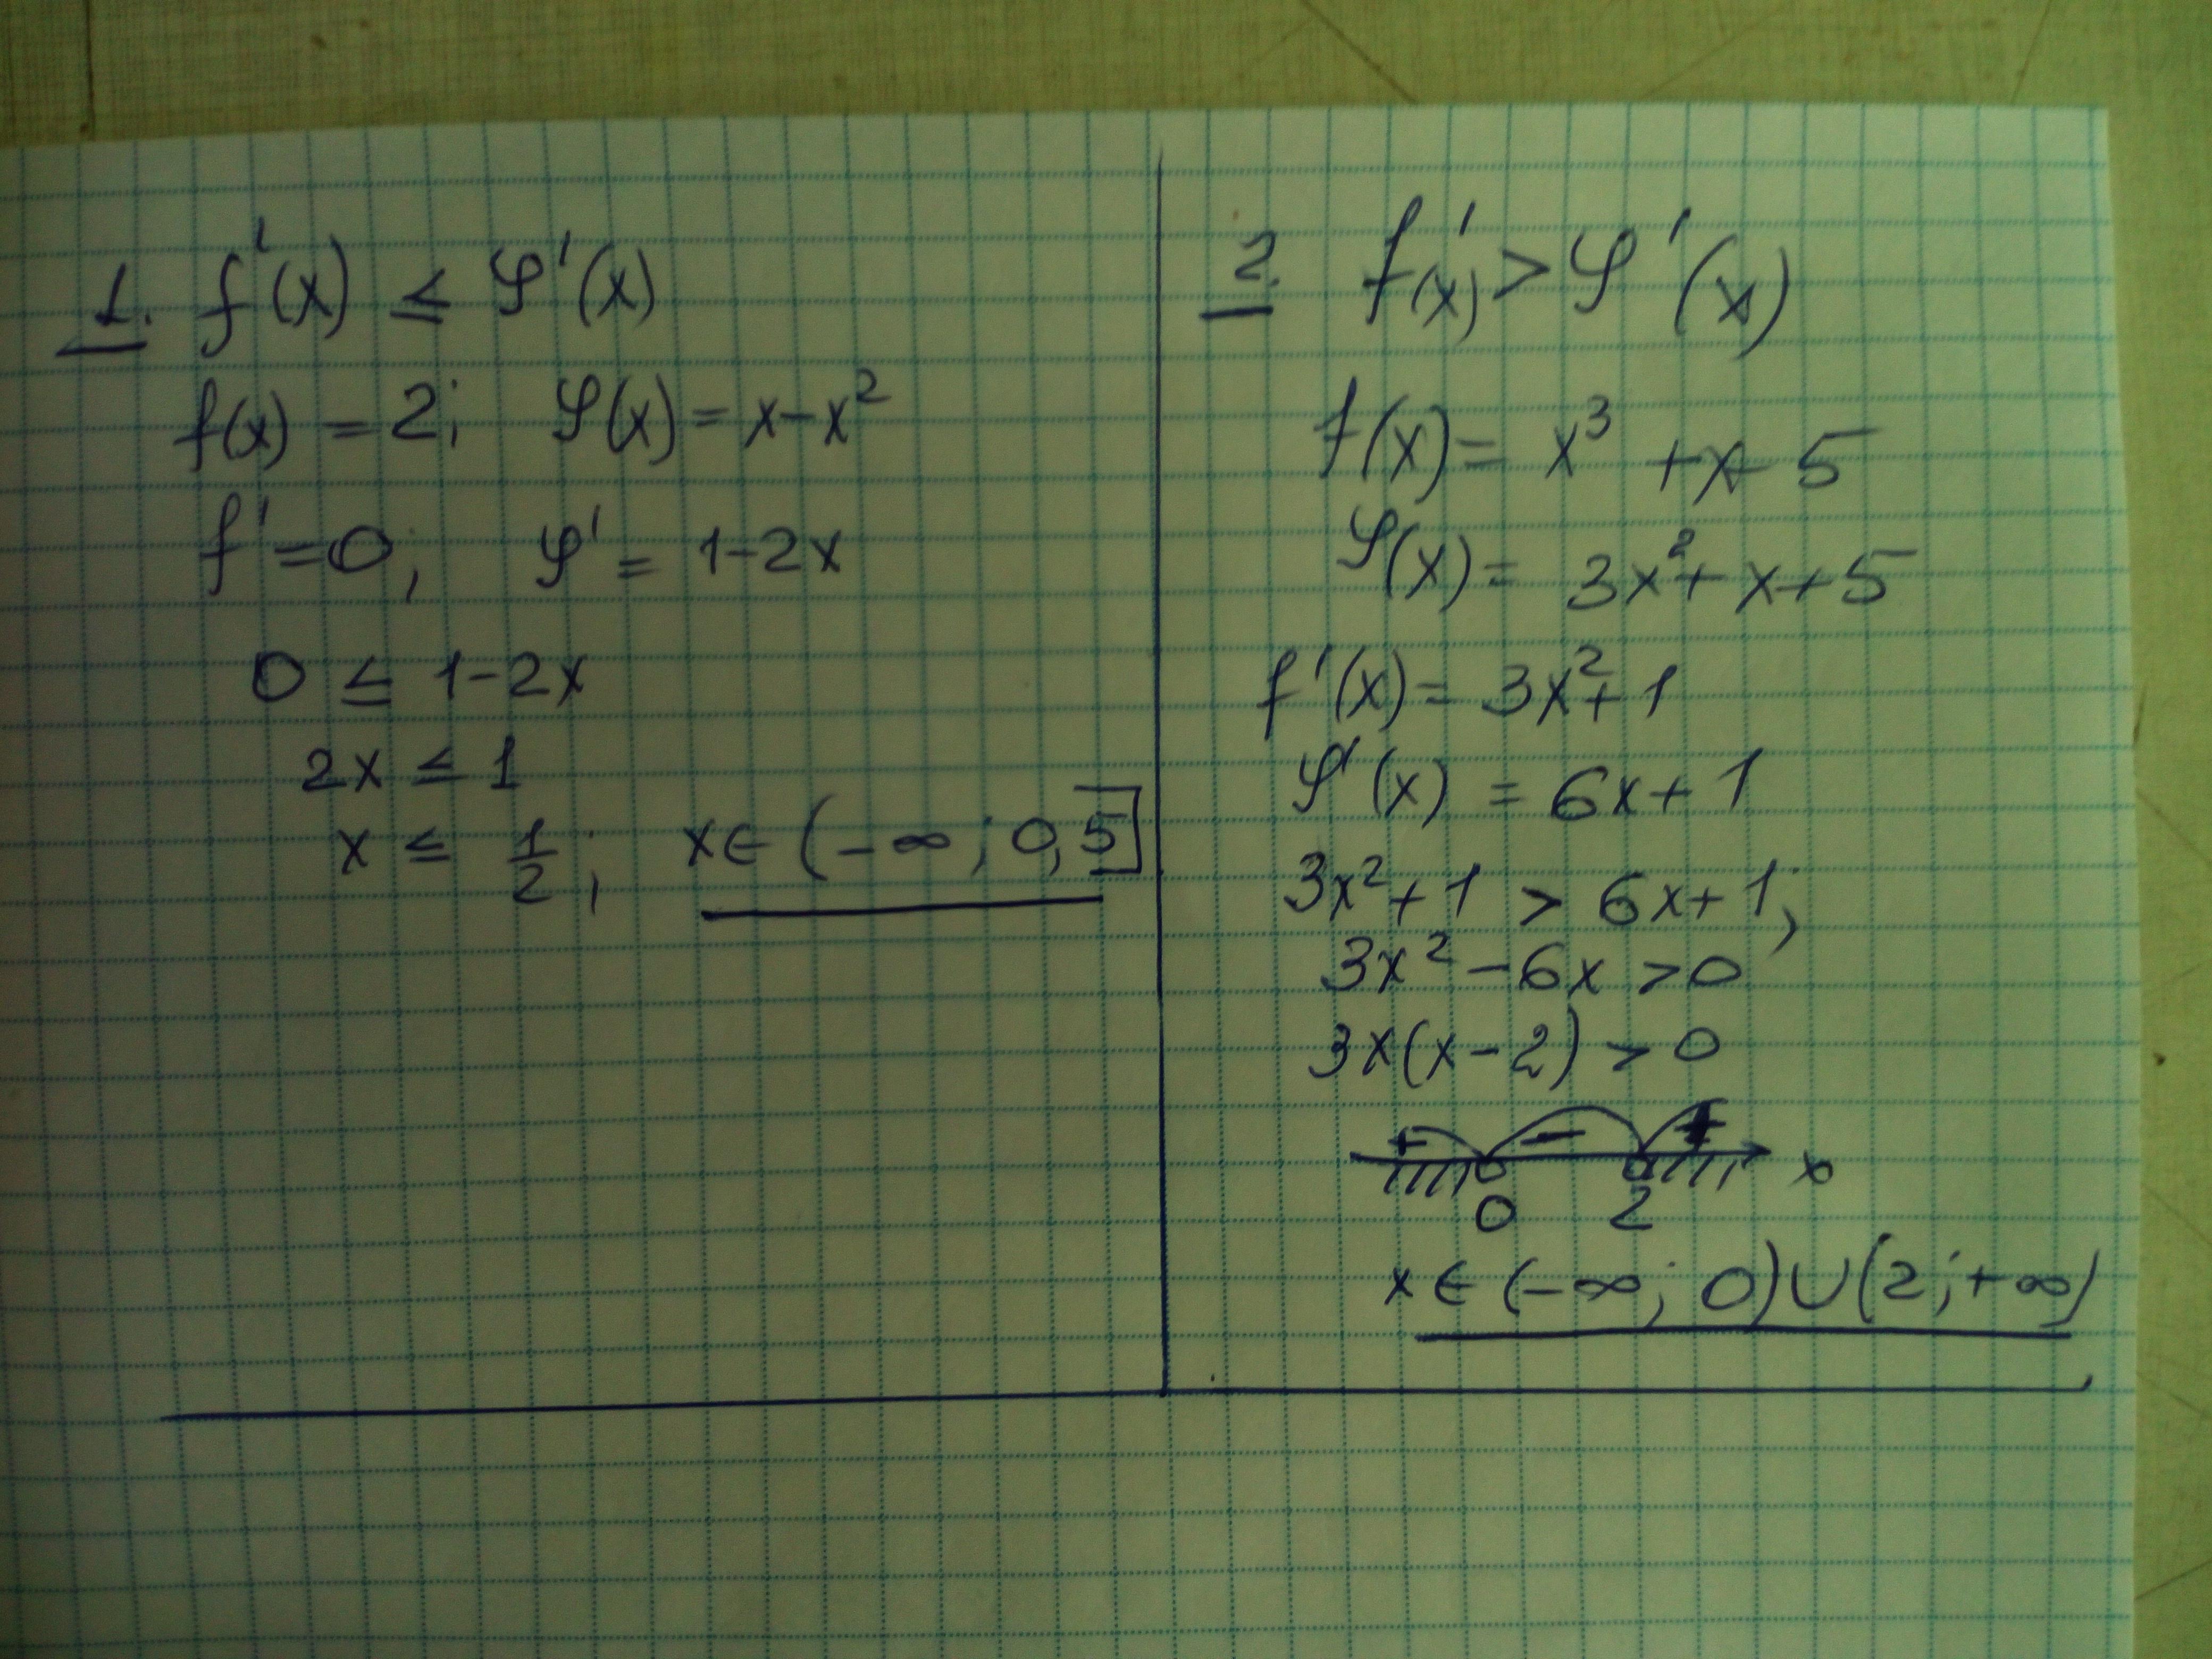 1. f'(x) ≤ φ'(x)
f(x) = 2; φ(x) = x-x²
f' = 0; φ' = 1-2x
0 ≤ 1-2x
2x ≤ 1
x ≤ 1/2; x∈(-∞; 0,5]
2. f'(x) > φ'(x)
f(x) = x³ + x - 5
φ(x) = 3x² + x + 5
f'(x) = 3x² + 1
φ'(x) = 6x + 1
3x² + 1 > 6x + 1;
3x² - 6x > 0
3x(x-2) > 0
+ - + x
0 2
x∈(-∞; 0)∪(2; +∞)